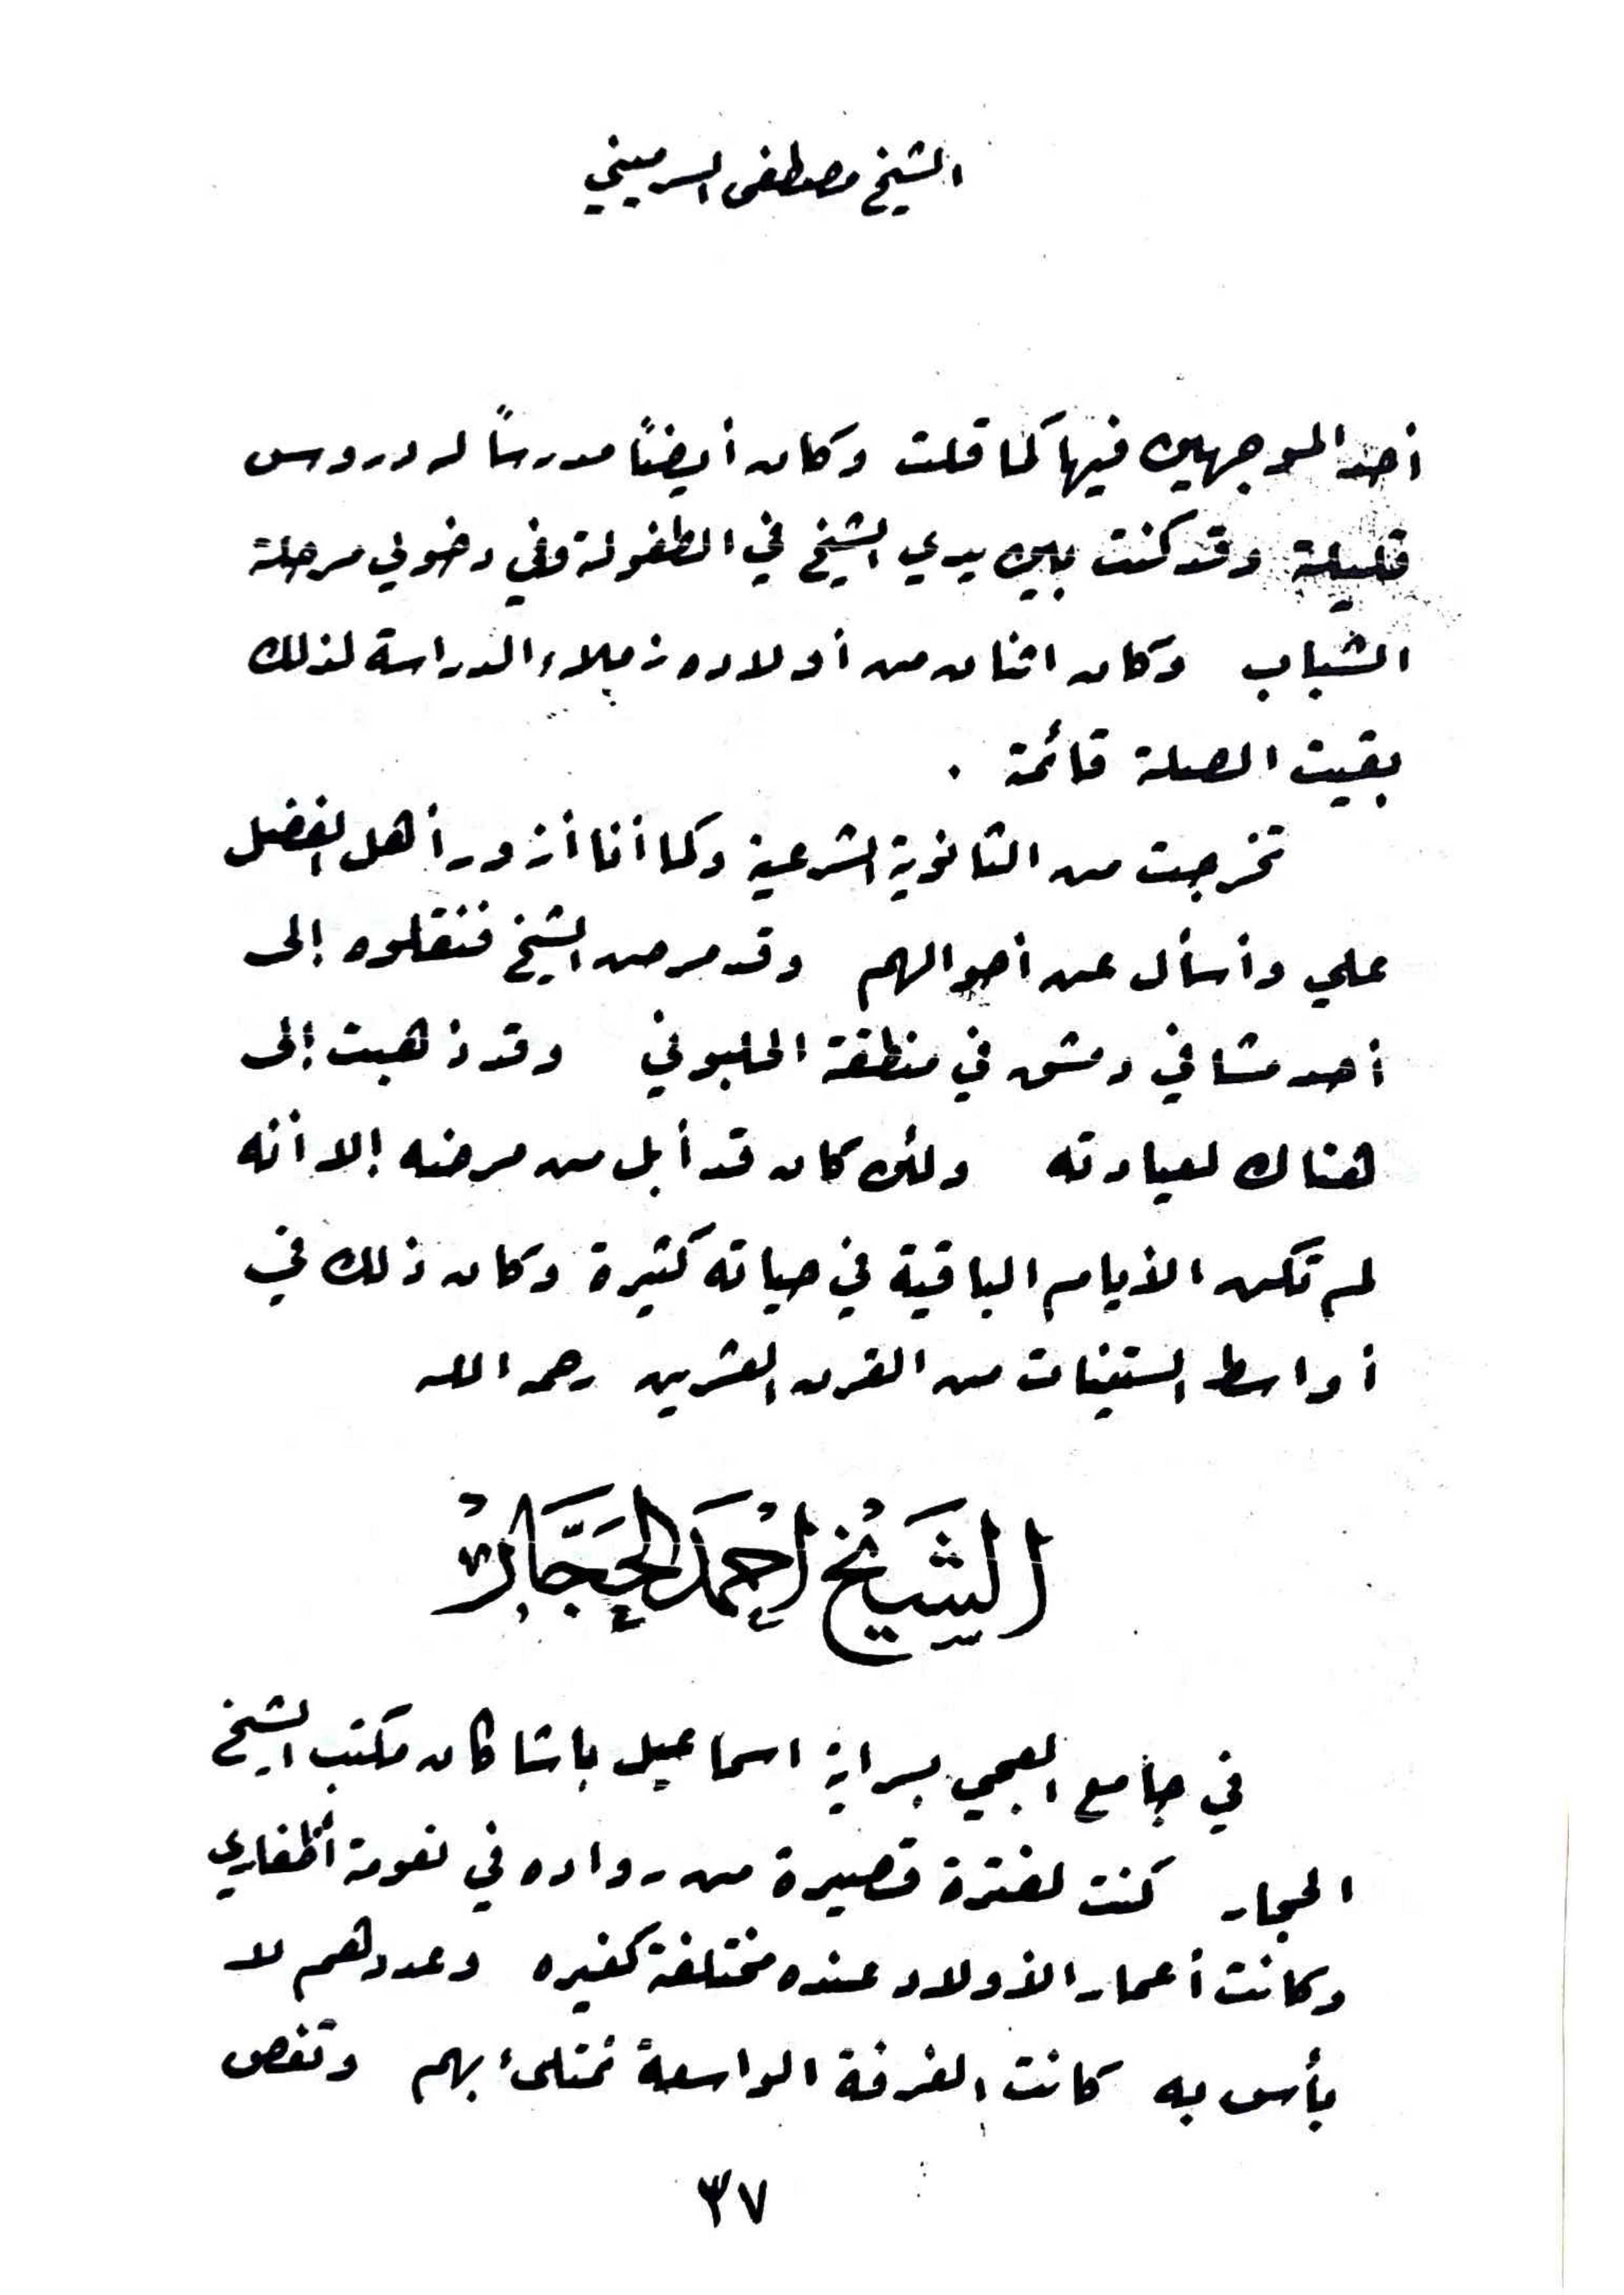 الشيخ مصطفى السرميني
أحد الموجهين فيها كما قلت وكان أيضاً مدرساً له دروس
قليلة وقد كنت بين يدي الشيخ في الطفولة وفي دخولي مرحلة
الشباب وكان اثنان من أولاده زملاء الدراسة لذلك
بقيت الصلة قائمة .
تخرجت من الثانوية الشرعية وكما أنا أزور أهل الفضل
علي وأسأل عن أحوالهم وقد مرض الشيخ فنقلوه إلى
أحد مشافي دمشق في منطقة الحلبوني وقد ذهبت إلى
هناك لعيادته ولئن كان قد أبل من مرضه إلا أنه
لم تكن الأيام الباقية في حياته كثيرة وكان ذلك في
أواسط الستينات من القرن العشرين رحمه الله
الشَيْخ احْمَد الحَجَّارْ
في جامع العجمي بسراية اسماعيل باشا كان مكتب الشيخ
الحجار كنت لفترة قصيرة من رواده في نعومة أظفاري
وكانت أعمار الأولاد عنده مختلفة كغيره وعددهم لا
بأس به كانت الغرفة الواسعة تمتلئ بهم وتغص
٣٧